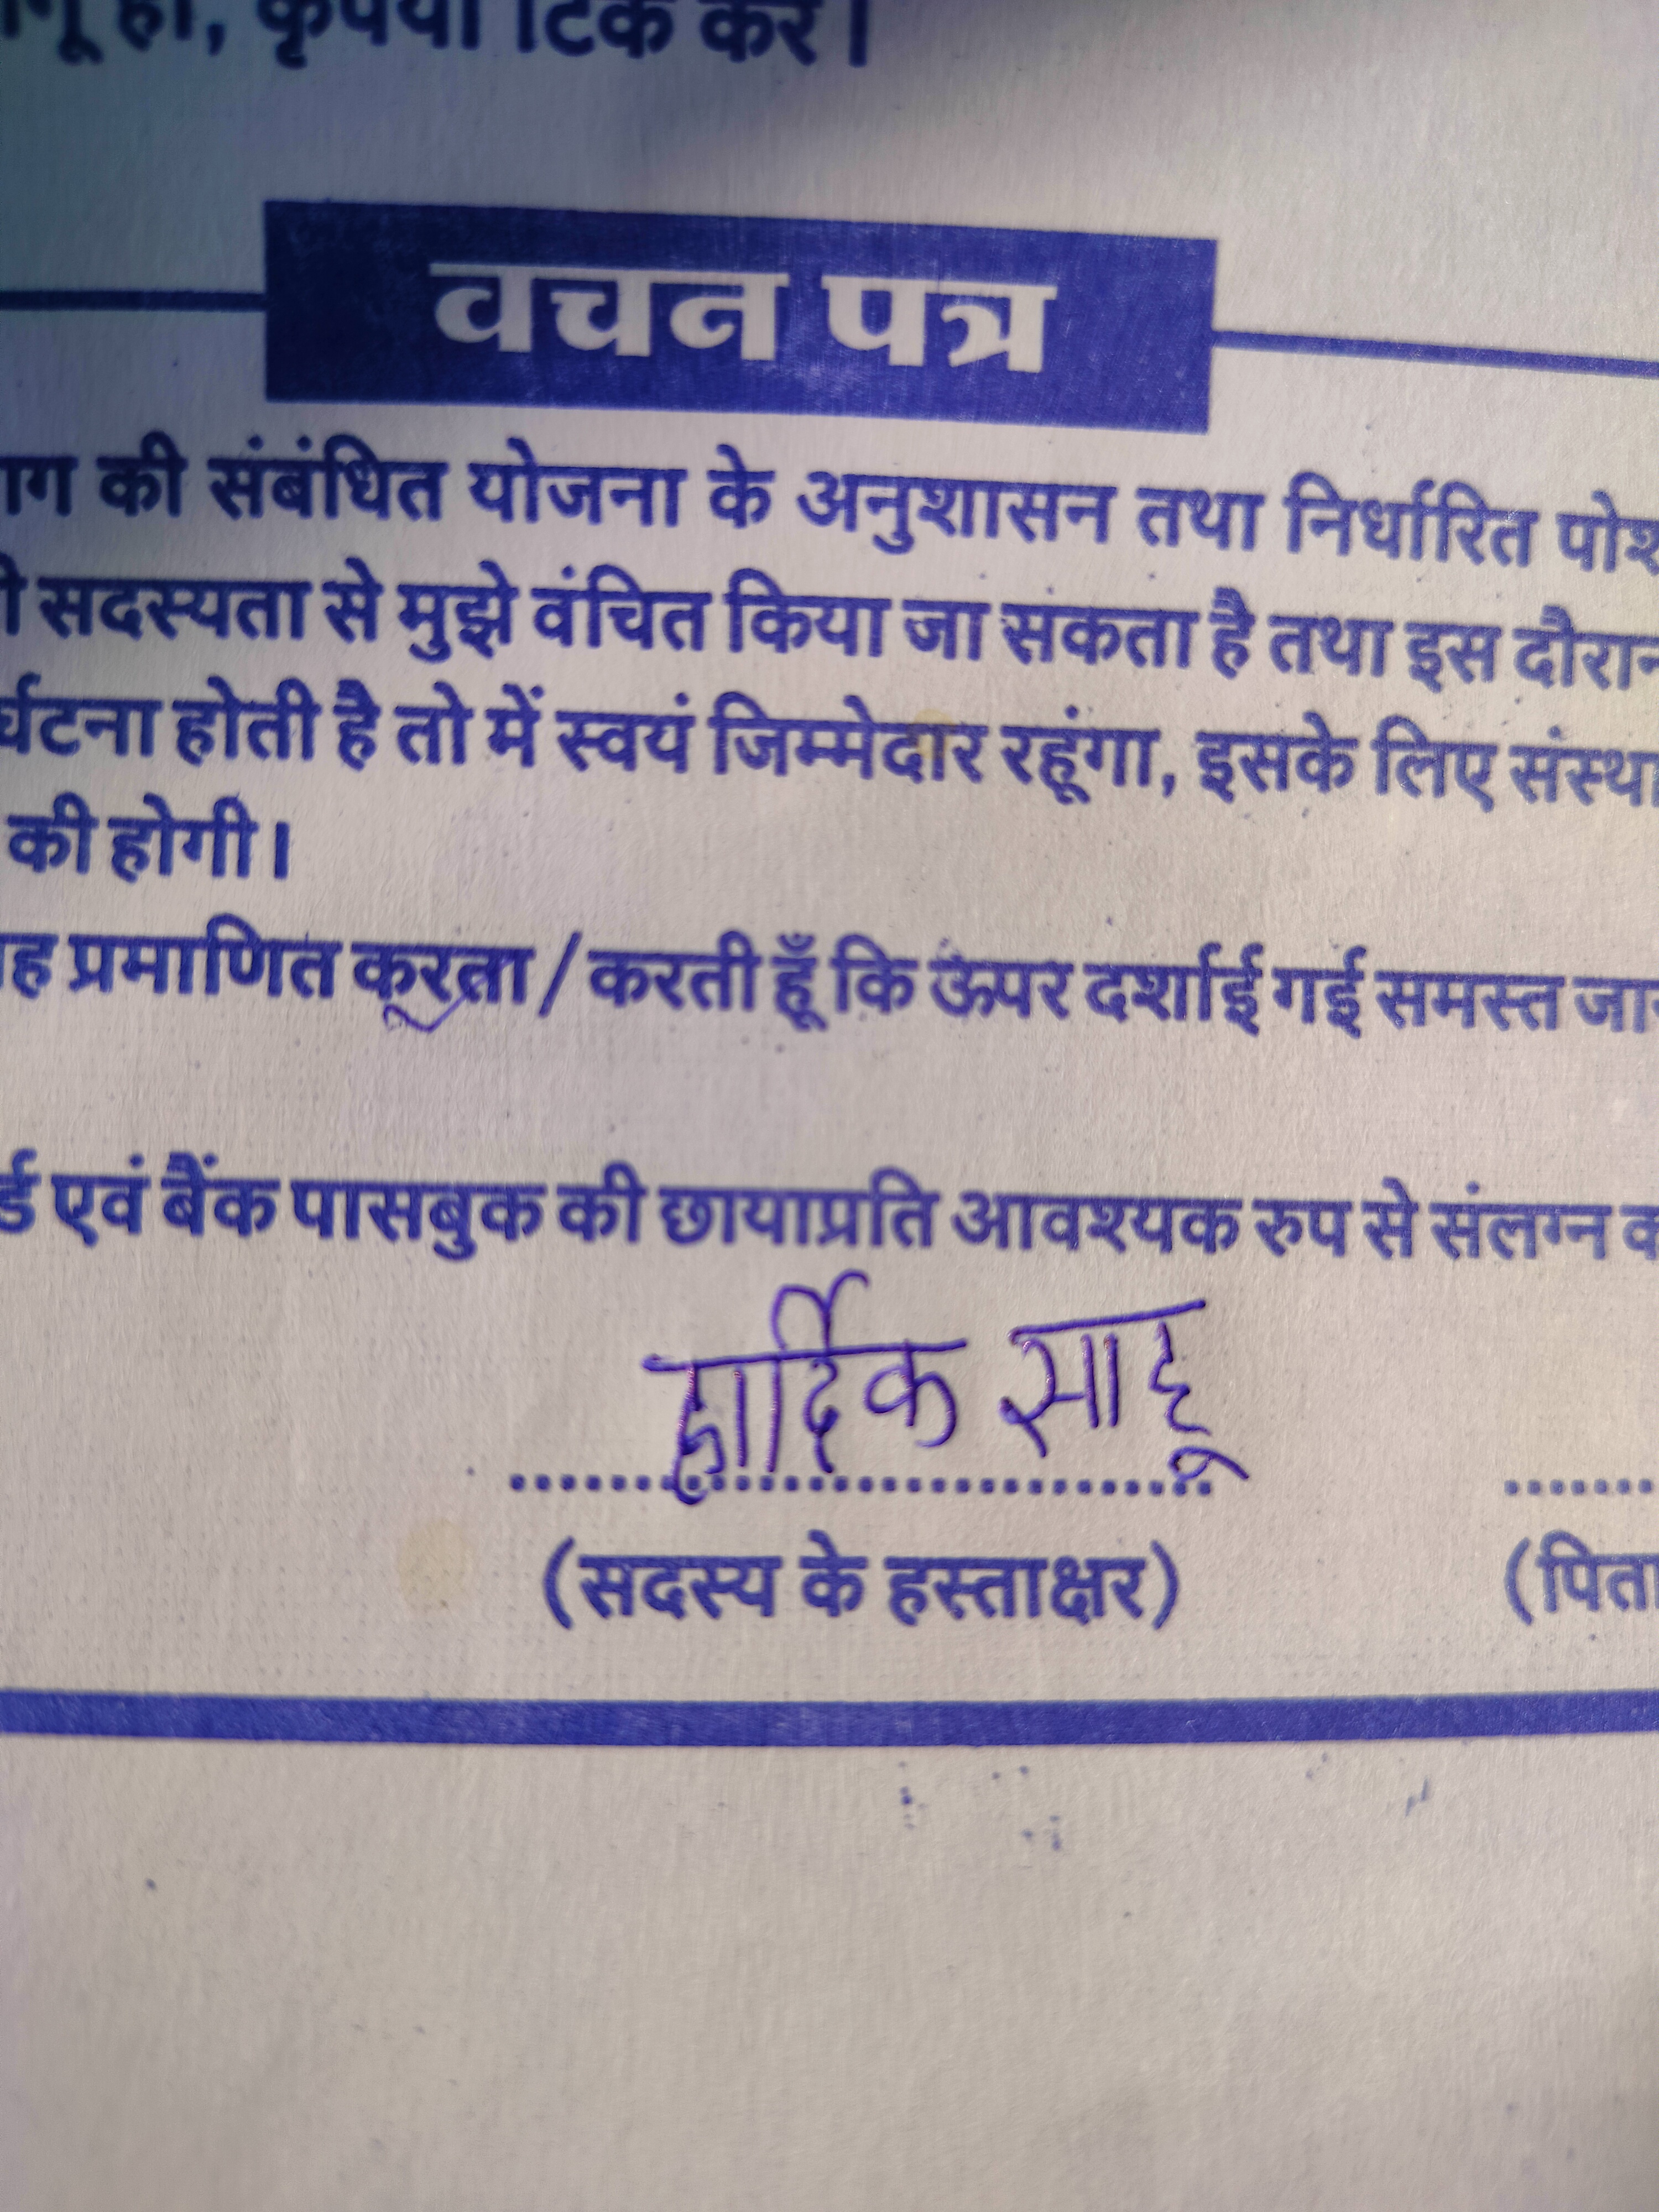 हो, कृपया टिक करें।
वचन पत्र
की संबंधित योजना के अनुशासन तथा निर्धारित
सदस्यता से मुझे वंचित किया जा सकता है तथा इस दौरान
होती है तो में स्वयं जिम्मेदार रहूंगा, इसके लिए संस्था
की होगी।
प्रमाणित करता / करती हूँ कि ऊपर दर्शाई गई समस्त
एवं बैंक पासबुक की छायाप्रति आवश्यक रुप से संलग्न
हार्दिक साहू
(सदस्य के हस्ताक्षर) (पिता